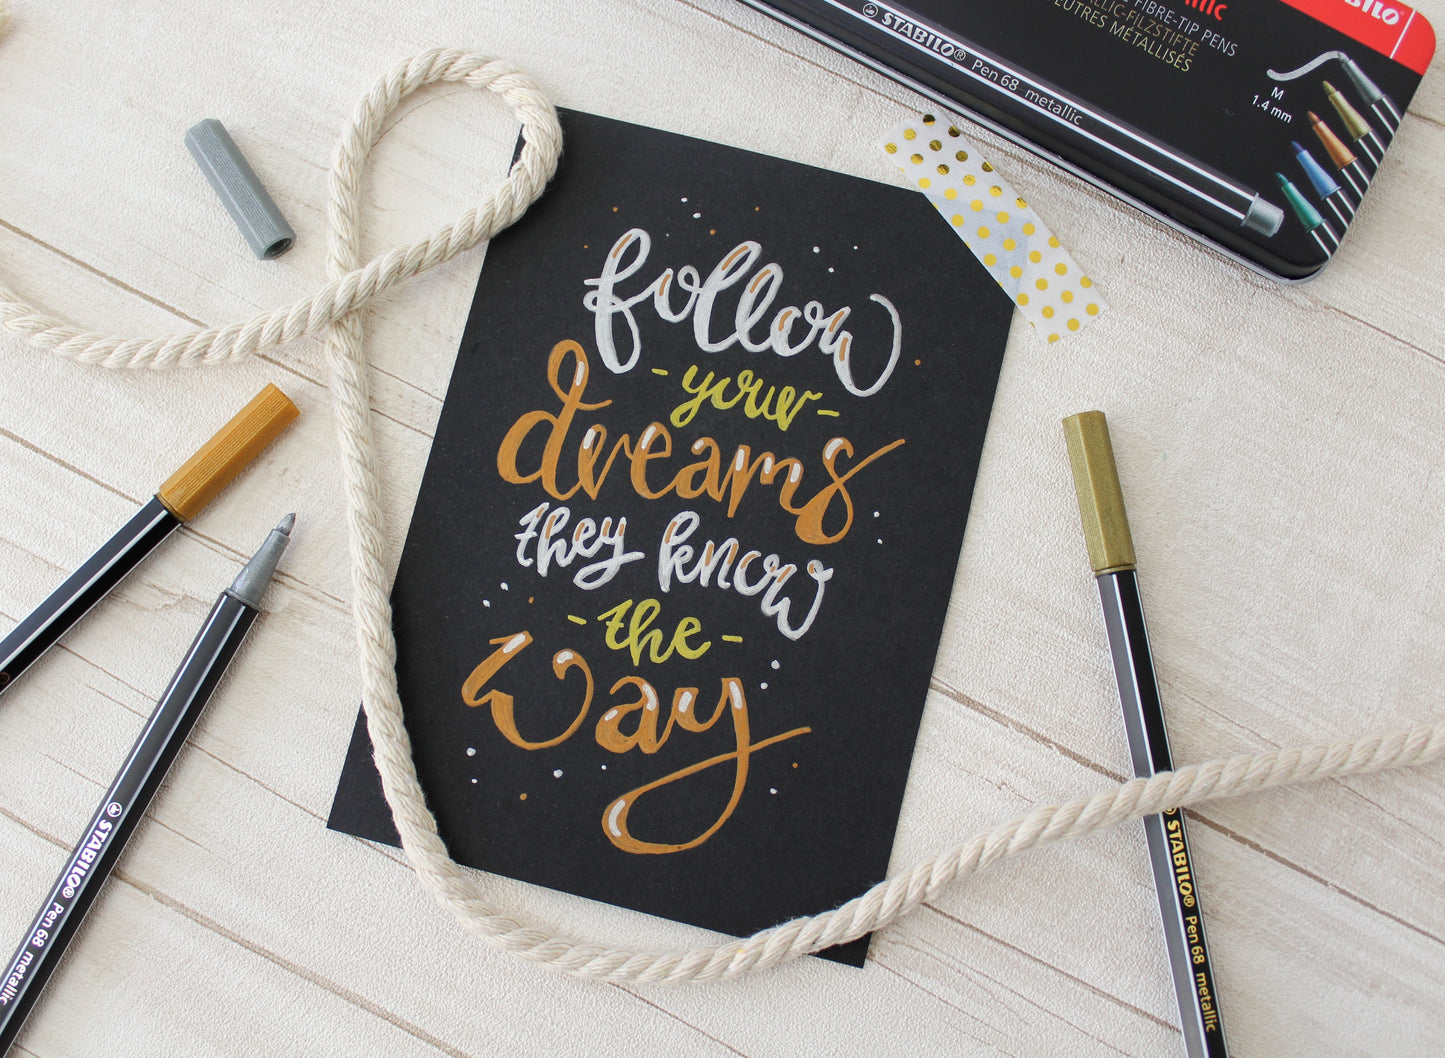 follow
- your -
dreams
they know
- the -
way
STABILO® Pen 68 metallic
FIBRE-TIP PENS
METALLIC-FILZSTIFTE
FEUTRES MÉTALLISÉS
M
1.4 mm
STABILO
STABILO® Pen 68 metallic
STABILO® Pen 68 metallic